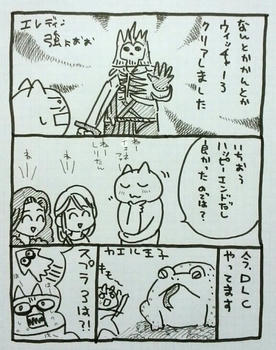 なんとかかんとか
ウィッチャー3
クリアしました
エレディン
強におぉ
いちおう
ハッピーエンドだし
良かったのでは?
ね〜
ね〜
今、DLC
やってます
カエル王子
キモ
スプラ3は?!